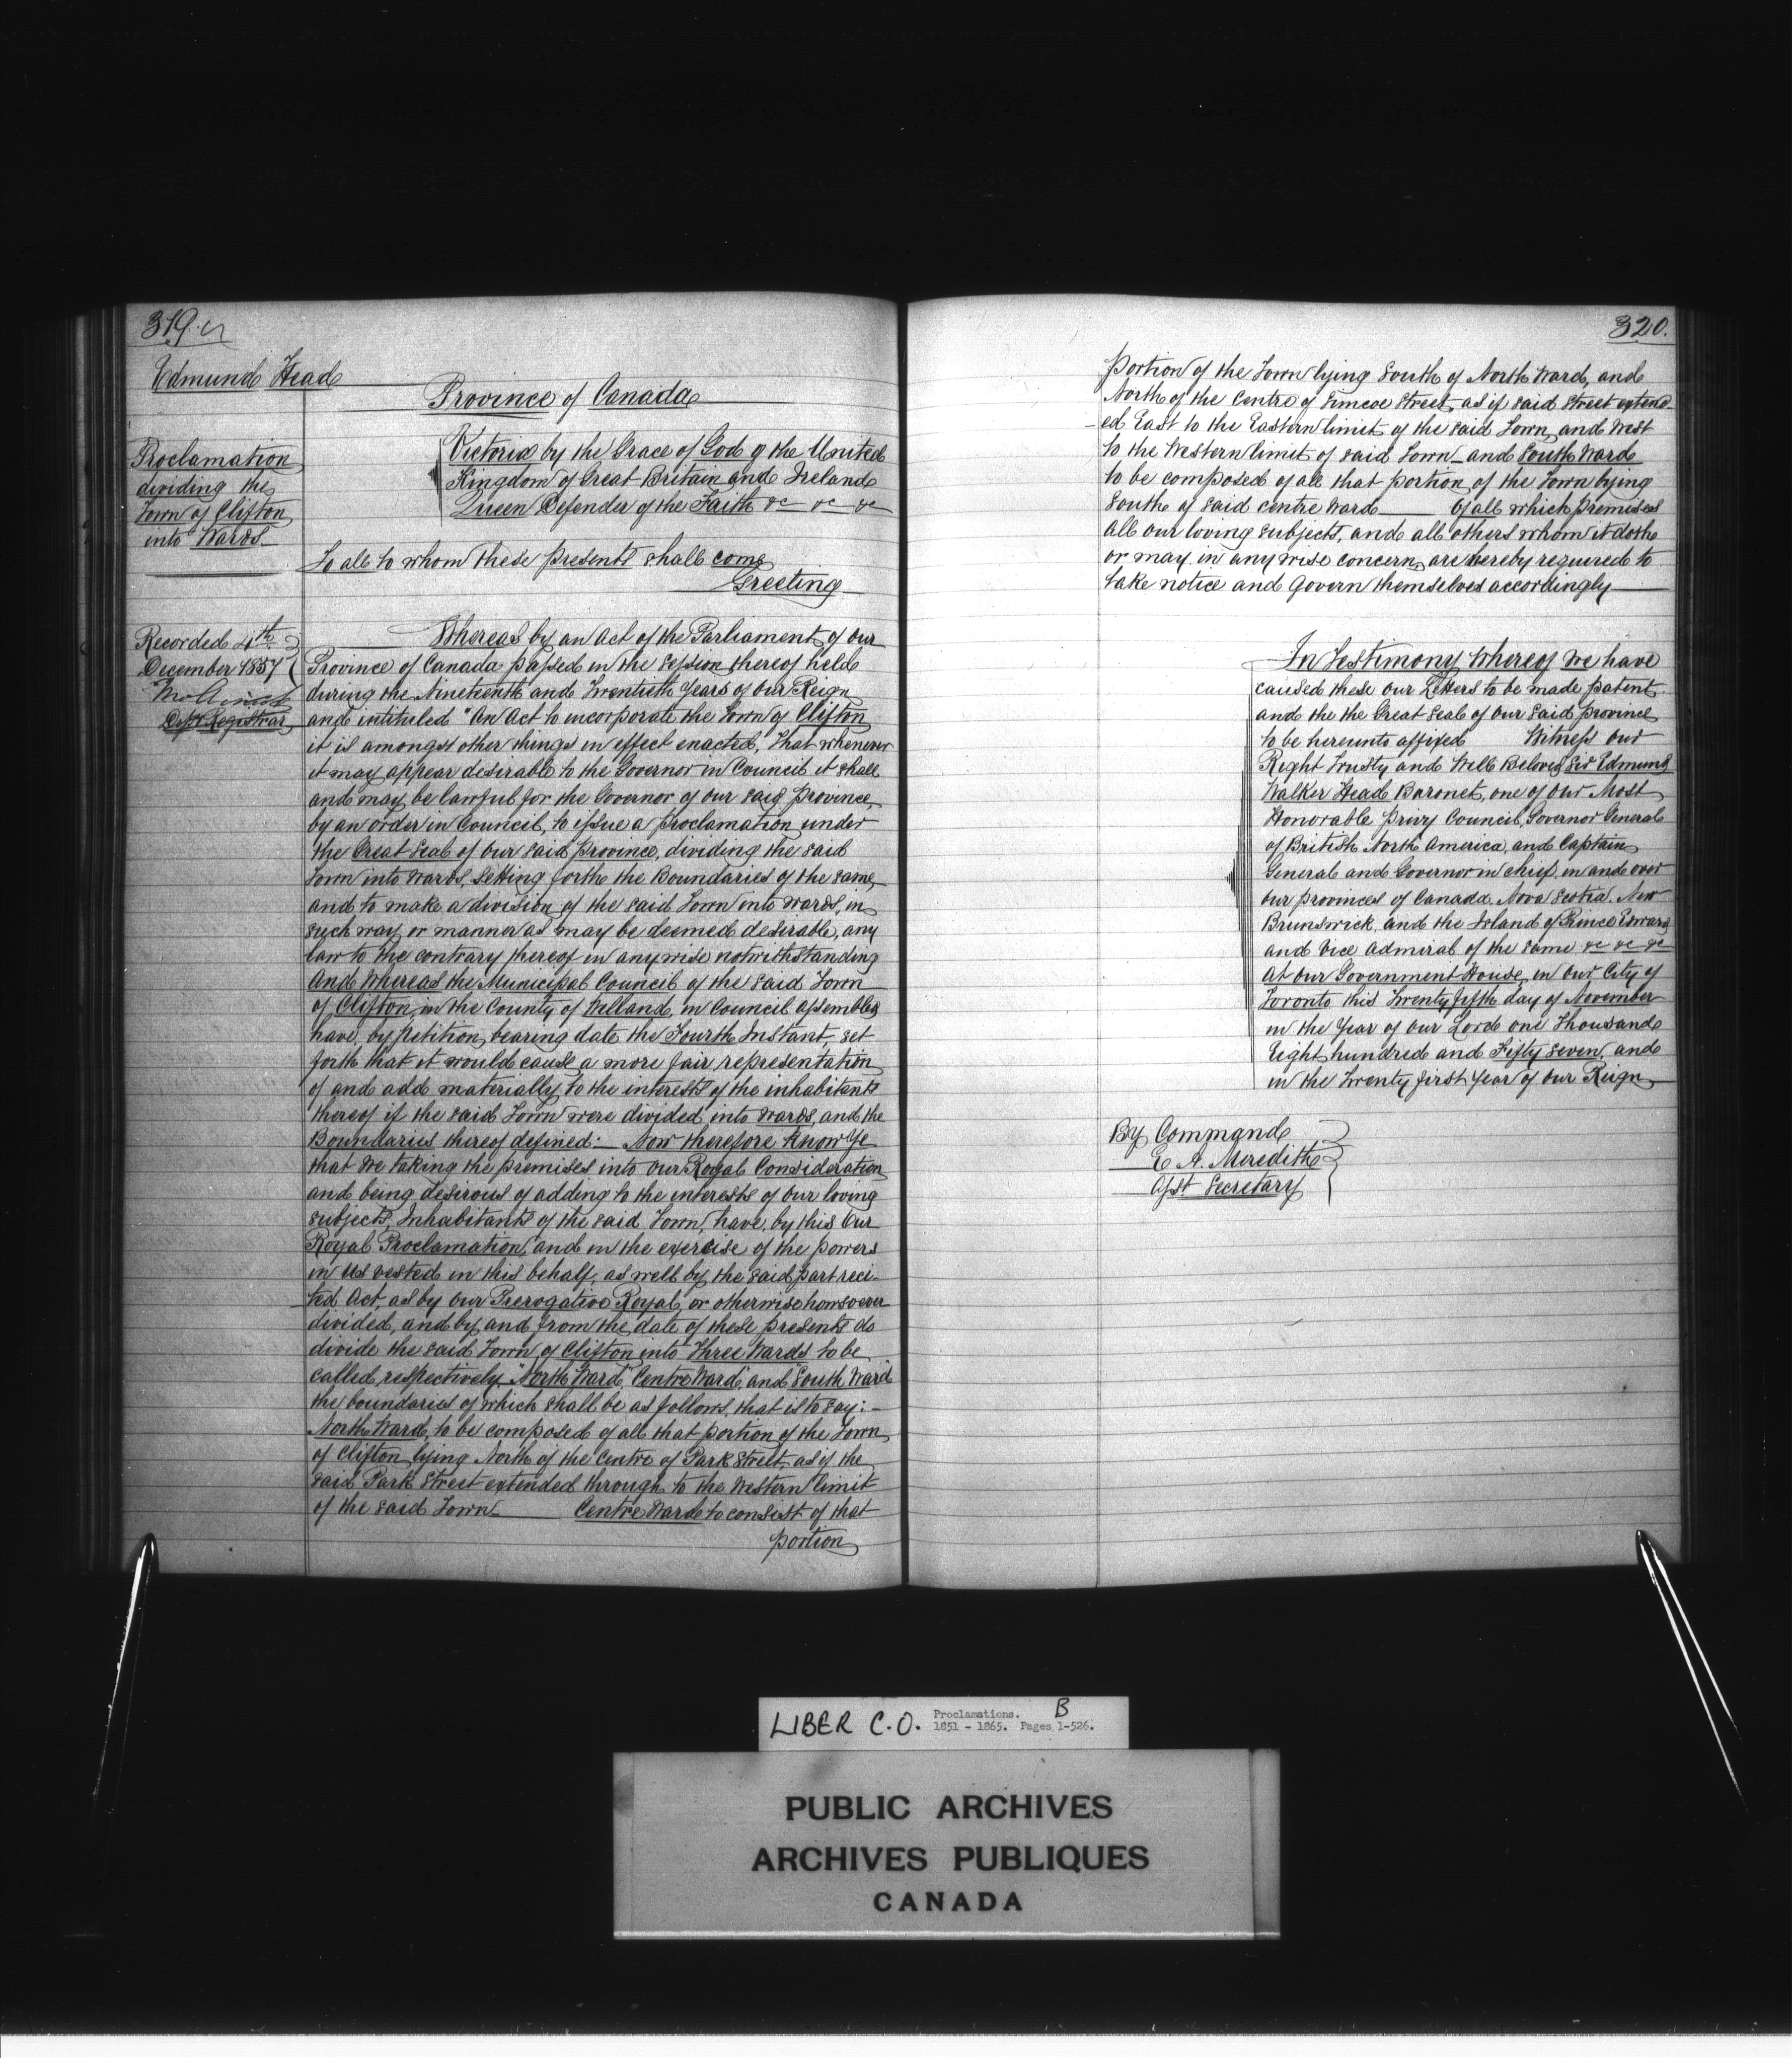 319.
Edmund Head
Province of Canada
Proclamation
dividing the
Town of Clifton
into Wards
Victoria by the Grace of God of the United
Kingdom of Great Britain and Ireland
Queen Defender of the Faith &c &c &c
To all to whom these presents shall come
Greeting
Recorded 4th
December 1857
Depy Registrar
Whereas by an Act of the Parliament of our
Province of Canada passed in the session thereof held
during the Nineteenth and Twentieth Years of Our Reign
and intituled "An Act to incorporate the Town of Clifton
it is amongst other things in effect enacted, That whenever
it may appear desirable to the Governor in Council it shall
and may be lawful for the Governor of our said province,
by an order in Council, to issue a proclamation under
the Great Seal of Our said province, dividing the said
Town into wards, setting forth the Boundaries of the same,
and to make a division of the said Town into wards, in
such way or manner as may be deemed desirable, any
law to the contrary thereof in any wise notwithstanding
And Whereas the Municipal Council of the said Town
of Clifton, in the County of Welland, in Council assembled
have, by petition, bearing date the Fourth Instant, set
forth that it would cause a more fair representation
of and add materially to the interests of the inhabitants
thereof if the said Town were divided into wards, and the
Boundaries thereof defined:_ Now therefore Know Ye
that We taking the premises into our Royal Consideration
and being desirous of adding to the interests of our loving
subjects, Inhabitants of the said Town, have, by this Our
Royal Proclamation, and in the exercise of the powers
in us vested in this behalf, as well by the said part reci-
ted Act, as by our Prerogative Royal, or otherwise howsoever
divided, and by and from the date of these presents do
divide the said Town of Clifton into Three Wards to be
called respectively, "North Ward" "Centre Ward", and "South Ward"
the boundaries of which shall be as follows, that is to say:-
North Ward, to be composed of all that portion of the Town
of Clifton lying North of the Centre of Park Street, as if the
said Park Street extended through to the Western limit
of the said Town_ Centre Ward to consist of that
portion
320.
portion of the Town lying South of North Ward, and
North of the Centre of Simcoe Street, as if said Street extend-
ed East to the Eastern limit of the said Town, and West
to the Western limit of said Town_ and South Ward
to be composed of all that portion of the Town lying
South of said Centre Ward Of all which premises
all our loving subjects, and all others whom it doth
or may in any wise concern, are hereby required to
take notice and Govern themselves accordingly
In Testimony Whereof We have
caused these our Letters to be made patent
and the the Great Seal of Our said province
to be hereunto affixed Witness Our
Right Trusty and Well Beloved Sir Edmund
Walker Head Baronet, one of Our Most
Honorable Privy Council, Governor General
of British North America, and Captain
General and Governor in chief, in and over
our provinces of Canada, Nova Scotia, New
Brunswick, and the Island of Prince Edward
and Vice Admiral of the same &c &c &c
At Our Government House, in Our City of
Toronto this Twenty fifth day of November
in the Year of our Lord one Thousand
Eight hundred and Fifty seven, and
in the Twenty first Year of our Reign
By Command
E A. Meredith
Asst Secretary
LIBER C.O. Proclamations. B
1851 - 1865. Pages 1-526.
PUBLIC ARCHIVES
ARCHIVES PUBLIQUES
CANADA